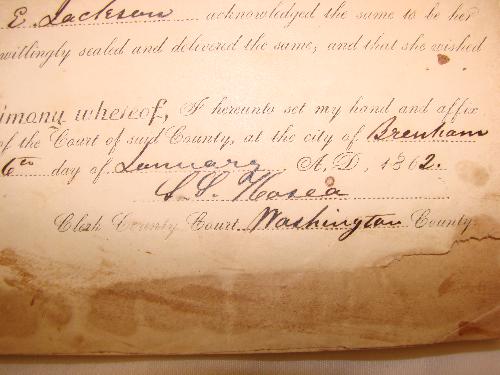 E. Jackson acknowledged the same to be her
willingly sealed and delivered the same, and that she wished
timony whereof, I hereunto set my hand and affix
of the Court of said County, at the city of Brenham
6th day of January A.D, 1862.
S S Hosea
Clerk County Court Washington County